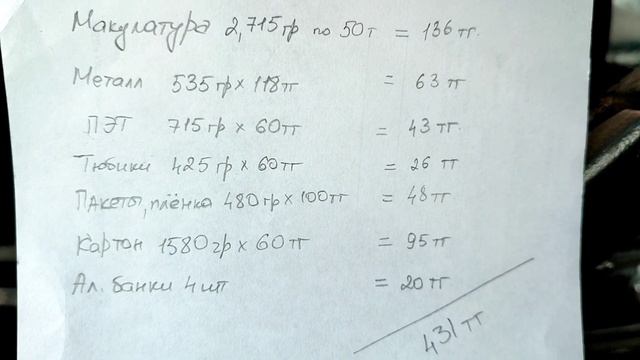 Макулатура 2,715гр по 50т = 136 тг.
Металл 535гр х 118тг = 63 тг
ПЭТ 715гр х 60тг = 43 тг.
Тюбики 425гр х 60тг = 26 тг
Пакеты, плёнка 480гр х 100тг = 48тг
Картон 1580гр х 60тг = 95тг
Ал. банки 4 шт = 20тг
431 тг